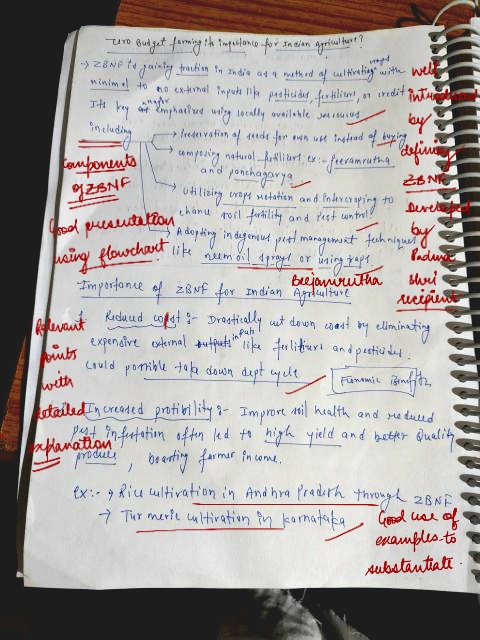 Zero Budget farming its importance for Indian Agriculture?
→ ZBNF is gaining traction in India as a method of cultivating crops with
minimal to no external inputs like pesticides, fertilizers, or credit
Its key emphasizes using locally available resources
including
→ Preservation of seeds for own use instead of buying
→ composing natural fertilizers ex:- Jeevamrutha
and panchagavya
→ Utilizing crops rotation and intercropping to
ehance soil fertility and Pest control
→ Adopting indegenous pest management techniques
like neem oil sprays or using traps
well
introduced
by
defining
ZBNF
Developed
by
Padma
shri
recipient
Components
of ZBNF
Good presentation
using flowchart
Beejamrutha
Importance of ZBNF for Indian Agriculture
1. Reduced cost :- Drastically cut down coast by eliminating
expensive external inputs like fertilizers and pesticides.
could possible take down dept cycle
Economic Benefits
Increased protibility :- Improve soil health and reduced
pest infestation often led to high yield and better Quality
produce, boasting farmer income.
Relevant
points
with
detailed
explanation
ex:- → Rice cultivation in Andhra Pradesh through ZBNF
→ Turmeric cultivation in Karnataka
Good use of
examples to
substantiate.